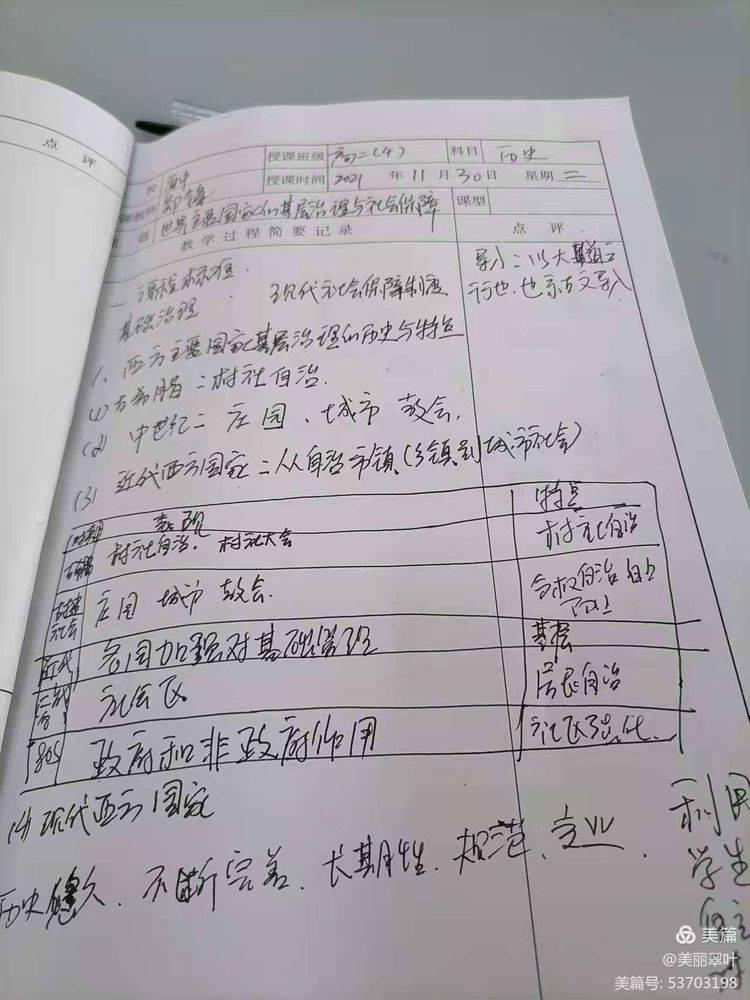 点 评
校 授课班级 高二(4) 科目 历史
授课教师 郑 授课时间 2021 年 11 月 30 日 星期 二
课题 世界主要国家的基层治理与社会保障 课型
教学过程简要记录 点 评
一 课程标准
基础治理 现代社会保障制度
导入:以大道之
行也
1、西方主要国家基层治理的历史与特点
(1) 古希腊:村社自治.
(2) 中世纪:庄园、城市 教会.
(3) 近代西方国家:从自治市镇(乡镇到城市社会)
时期 表现 特点
古希腊 村社自治, 村社大会 村社自治
社会 庄园 城市 教会. 自治
近代 各国加强对基础管理 基层
二战后 社会区 居民自治
80S 政府和非政府作用 社区
(4) 现代西方国家
历史悠久、不断完善、长期性、规范、专业、
利用
学生
自主
美篇
@美丽翠叶
美篇号: 53703198